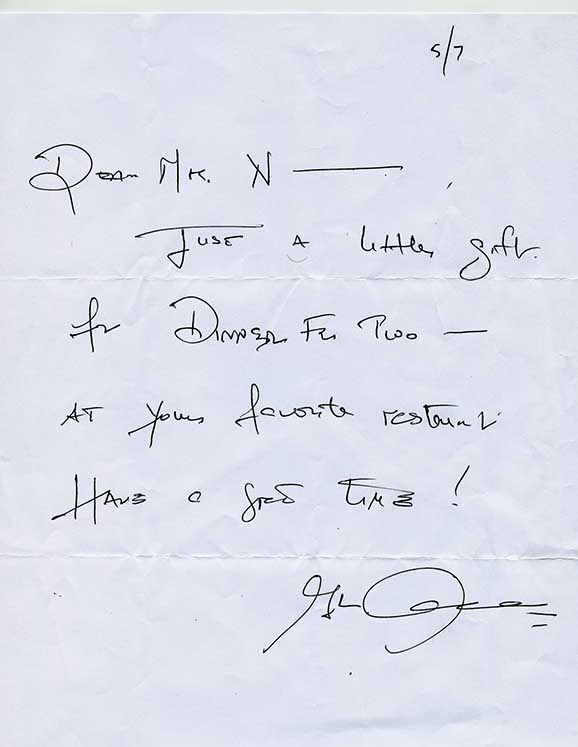 5/7
Dear Mr. X —
Just a little gift.
for Dinner For Two —
AT your favorite restaurant
Have a good time !